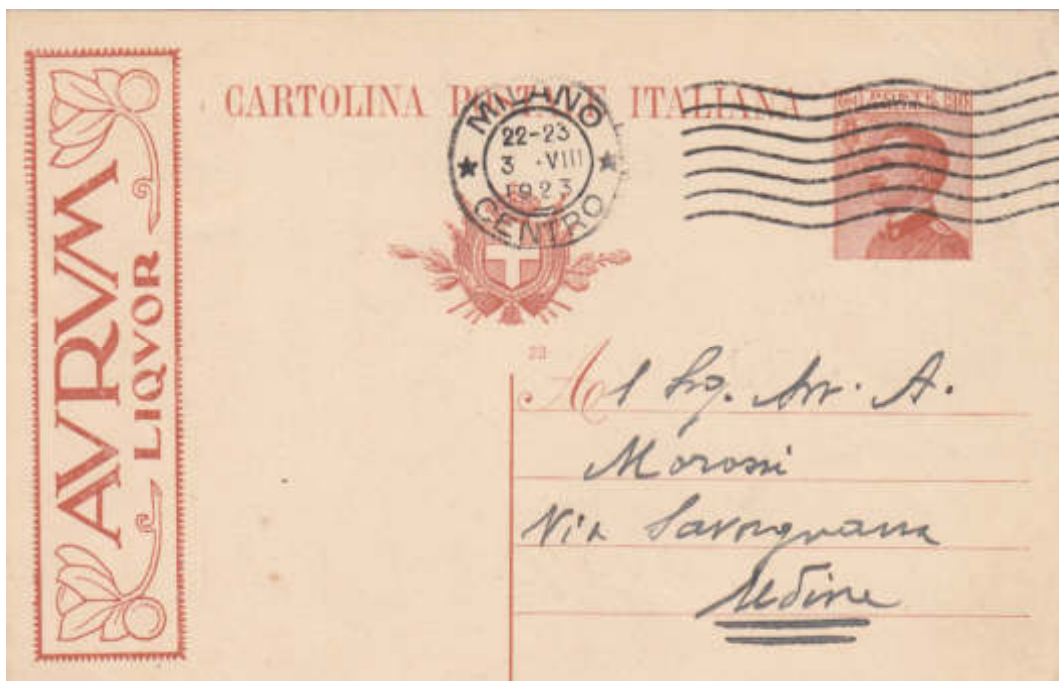 AVRVM
LIQVOR
CARTOLINA POSTALE ITALIANA
MILANO
22-23
3 · VIII
1923
CENTRO
POSTE
23
Al Sig. Avv. A.
Morossi
Via Savorgnana
Udine